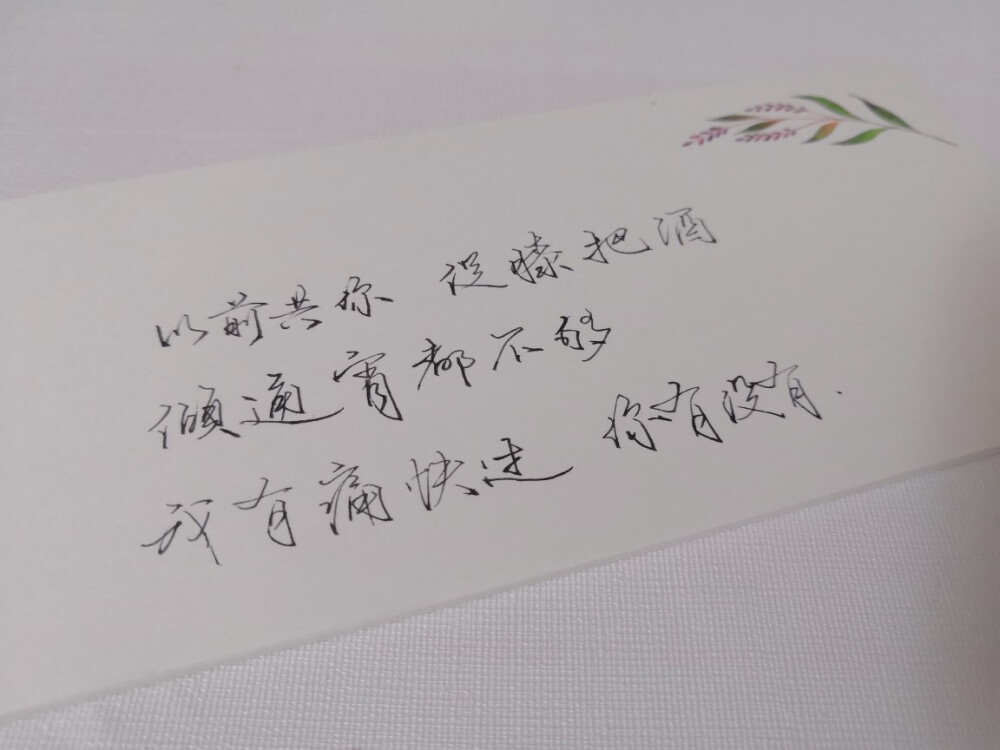 从前共你 促膝把酒
倾通宵都不够
我有痛快过 你有没有.